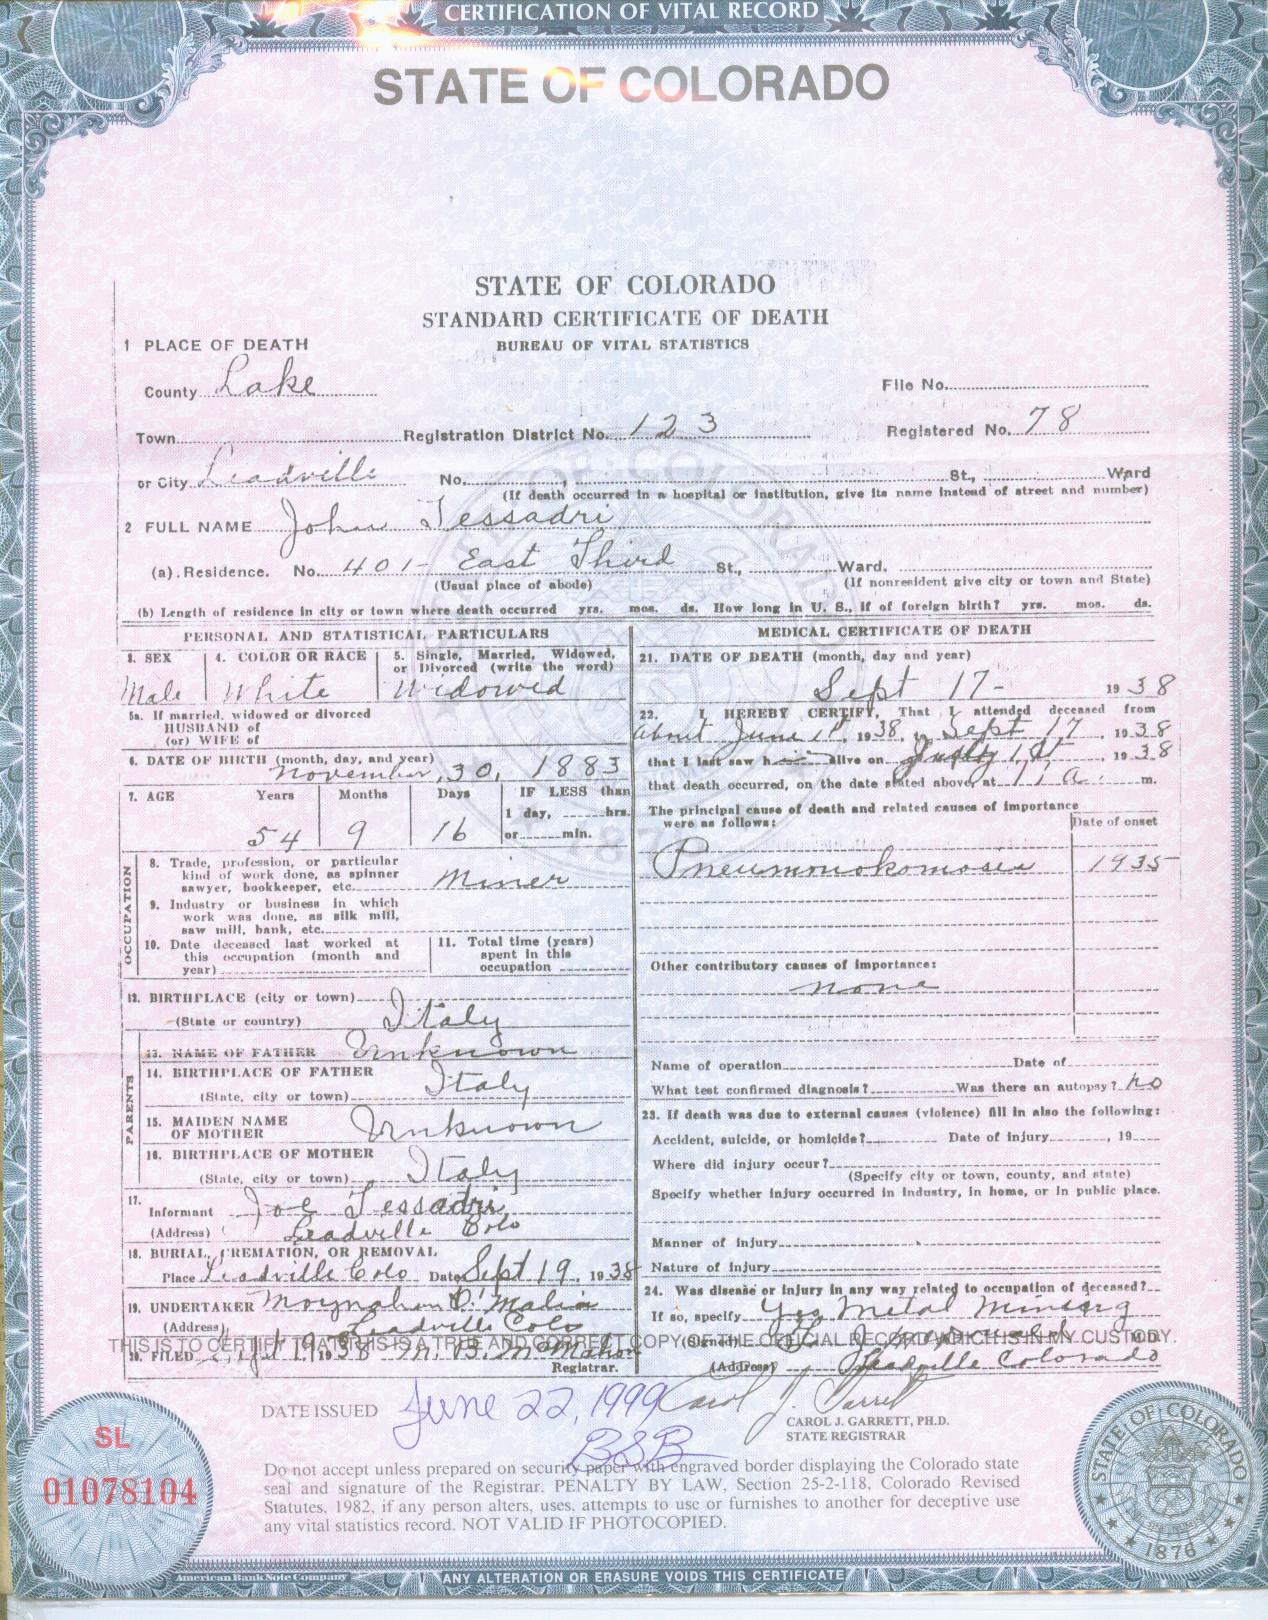 CERTIFICATION OF VITAL RECORD
STATE OF COLORADO
STATE OF COLORADO
STANDARD CERTIFICATE OF DEATH
BUREAU OF VITAL STATISTICS
1 PLACE OF DEATH
County Lake
File No.
Town Registration District No. 123 Registered No. 78
or City Leadville No. St., Ward
(If death occurred in a hospital or institution, give its name instead of street and number)
2 FULL NAME John Tessadri
(a). Residence. No. 401- East Third St., Ward.
(Usual place of abode) (If nonresident give city or town and State)
(b) Length of residence in city or town where death occurred yrs. mos. ds. How long in U. S., if of foreign birth? yrs. mos. ds.
PERSONAL AND STATISTICAL PARTICULARS
3. SEX 4. COLOR OR RACE 5. Single, Married, Widowed,
or Divorced (write the word)
Male White Widowed
5a. If married, widowed or divorced
HUSBAND of
(or) WIFE of
6. DATE OF BIRTH (month, day, and year)
November, 30, 1883
7. AGE Years Months Days IF LESS than
1 day, hrs.
54 9 16 or min.
OCCUPATION
8. Trade, profession, or particular
kind of work done, as spinner
sawyer, bookkeeper, etc. Miner
9. Industry or business in which
work was done, as silk mill,
saw mill, bank, etc.
10. Date deceased last worked at
this occupation (month and
year)
11. Total time (years)
spent in this
occupation
12. BIRTHPLACE (city or town)
(State or country) Italy
PARENTS
13. NAME OF FATHER Unknown
14. BIRTHPLACE OF FATHER
(State, city or town) Italy
15. MAIDEN NAME
OF MOTHER Unknown
16. BIRTHPLACE OF MOTHER
(State, city or town) Italy
17.
Informant Joe Tessadri
(Address) Leadville Colo
18. BURIAL, CREMATION, OR REMOVAL
Place Leadville Colo Date Sept 19, 1938
19. UNDERTAKER Moynahan O'Malia
(Address) Leadville Colo
20. FILED 1938 M. B. McMahon
Registrar.
MEDICAL CERTIFICATE OF DEATH
21. DATE OF DEATH (month, day and year)
Sept 17- 1938
22. I HEREBY CERTIFY, That I attended deceased from
About June 1st, 1938, Sept 17, 1938
that I last saw h alive on 1st, 1938
that death occurred, on the date stated above, at 11 a. m.
The principal cause of death and related causes of importance
were as follows:
Date of onset
Pneumonokomosis 1935
Other contributory causes of importance:
none
Name of operation Date of
What test confirmed diagnosis? Was there an autopsy? no
23. If death was due to external causes (violence) fill in also the following:
Accident, suicide, or homicide? Date of injury , 19
Where did injury occur?
(Specify city or town, county, and state)
Specify whether injury occurred in industry, in home, or in public place.
Manner of injury
Nature of injury
24. Was disease or injury in any way related to occupation of deceased?
If so, specify Yes Metal Mining
(Signed)
(Address) Leadville Colorado
THIS IS TO CERTIFY THAT THIS IS A TRUE AND CORRECT COPY OF THE OFFICIAL RECORD WHICH IS IN MY CUSTODY.
DATE ISSUED June 22, 1999 Carol J. Garrett
BSB
CAROL J. GARRETT, PH.D.
STATE REGISTRAR
SL
01078104
Do not accept unless prepared on security paper with engraved border displaying the Colorado state
seal and signature of the Registrar. PENALTY BY LAW, Section 25-2-118, Colorado Revised
Statutes, 1982, if any person alters, uses, attempts to use or furnishes to another for deceptive use
any vital statistics record. NOT VALID IF PHOTOCOPIED.
STATE OF COLORADO
1876
American Bank Note Company
ANY ALTERATION OR ERASURE VOIDS THIS CERTIFICATE